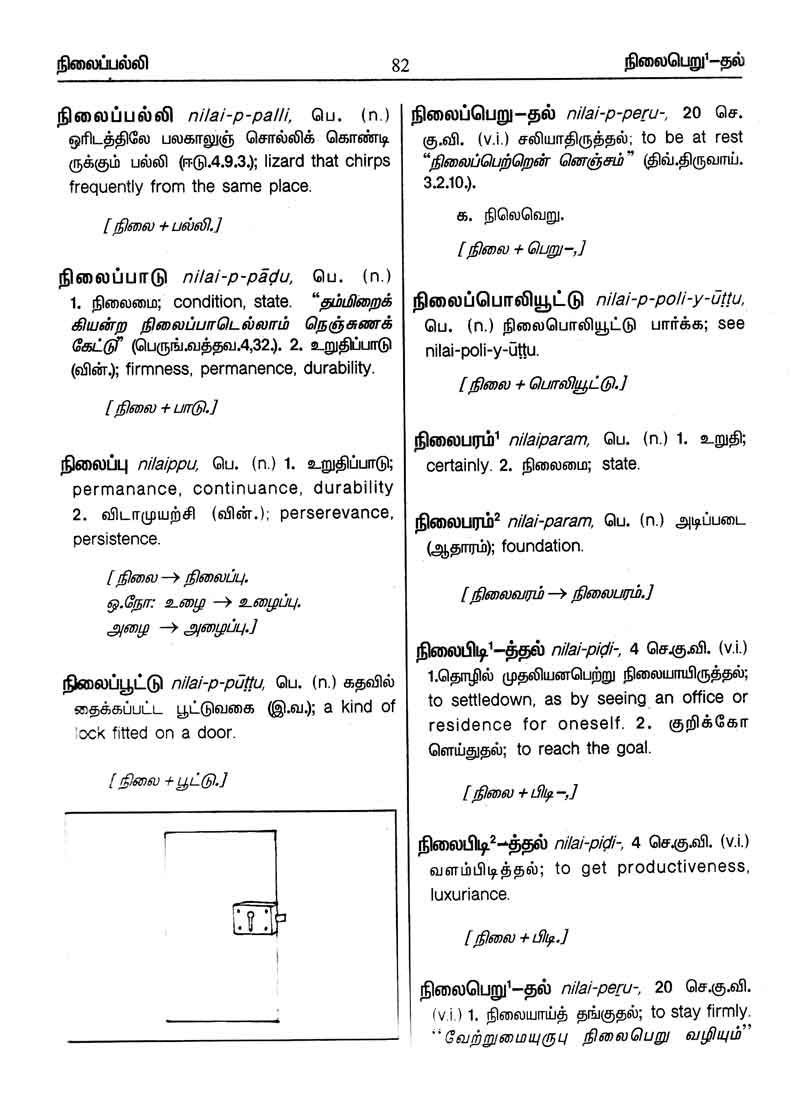 நிலைப்பல்லி
82
நிலைபெறு¹-தல்
நிலைப்பல்லி nilai-p-palli, பெ. (n.)
ஓரிடத்திலே பலகாலுஞ் சொல்லிக் கொண்டி
ருக்கும் பல்லி (ஈடு.4.9.3.); lizard that chirps
frequently from the same place.
[நிலை + பல்லி.]
நிலைப்பாடு nilai-p-pāḍu, பெ. (n.)
1. நிலைமை; condition, state. “தம்மிறைக்
கியன்ற நிலைப்பாடெல்லாம் நெஞ்சுணக்
கேட்டு” (பெருங்.வத்தவ.4,32.). 2. உறுதிப்பாடு
(வின்.); firmness, permanence, durability.
[நிலை + பாடு.]
நிலைப்பு nilaippu, பெ. (n.) 1. உறுதிப்பாடு;
permanance, continuance, durability
2. விடாமுயற்சி (வின்.); perserevance,
persistence.
[நிலை → நிலைப்பு.
ஒ.நோ: உழை → உழைப்பு.
அழை → அழைப்பு.]
நிலைப்பூட்டு nilai-p-pūṭṭu, பெ. (n.) கதவில்
தைக்கப்பட்ட பூட்டுவகை (இ.வ.); a kind of
lock fitted on a door.
[நிலை + பூட்டு.]
நிலைப்பெறு-தல் nilai-p-peṟu-, 20 செ.
கு.வி. (v.i.) சலியாதிருத்தல்; to be at rest
“நிலைப்பெற்றென் னெஞ்சம்” (திவ்.திருவாய்.
3.2.10.).
க. நிலெவெறு.
[நிலை + பெறு-,]
நிலைப்பொலியூட்டு nilai-p-poli-y-ūṭṭu,
பெ. (n.) நிலைபொலியூட்டு பார்க்க; see
nilai-poli-y-ūṭṭu.
[நிலை + பொலியூட்டு.]
நிலைபரம்¹ nilaiparam, பெ. (n.) 1. உறுதி;
certainly. 2. நிலைமை; state.
நிலைபரம்² nilai-param, பெ. (n.) அடிப்படை
(ஆதாரம்); foundation.
[நிலைவரம் → நிலைபரம்.]
நிலைபிடி¹-த்தல் nilai-piḍi-, 4 செ.கு.வி. (v.i.)
1.தொழில் முதலியனபெற்று நிலையாயிருத்தல்;
to settledown, as by seeing an office or
residence for oneself. 2. குறிக்கோ
ளெய்துதல்; to reach the goal.
[நிலை + பிடி-,]
நிலைபிடி²-த்தல் nilai-piḍi-, 4 செ.கு.வி. (v.i.)
வளம்பிடித்தல்; to get productiveness,
luxuriance.
[நிலை + பிடி.]
நிலைபெறு¹-தல் nilai-peṟu-, 20 செ.கு.வி.
(v.i.) 1. நிலையாய்த் தங்குதல்; to stay firmly.
“வேற்றுமையுருபு நிலைபெறு வழியும்”